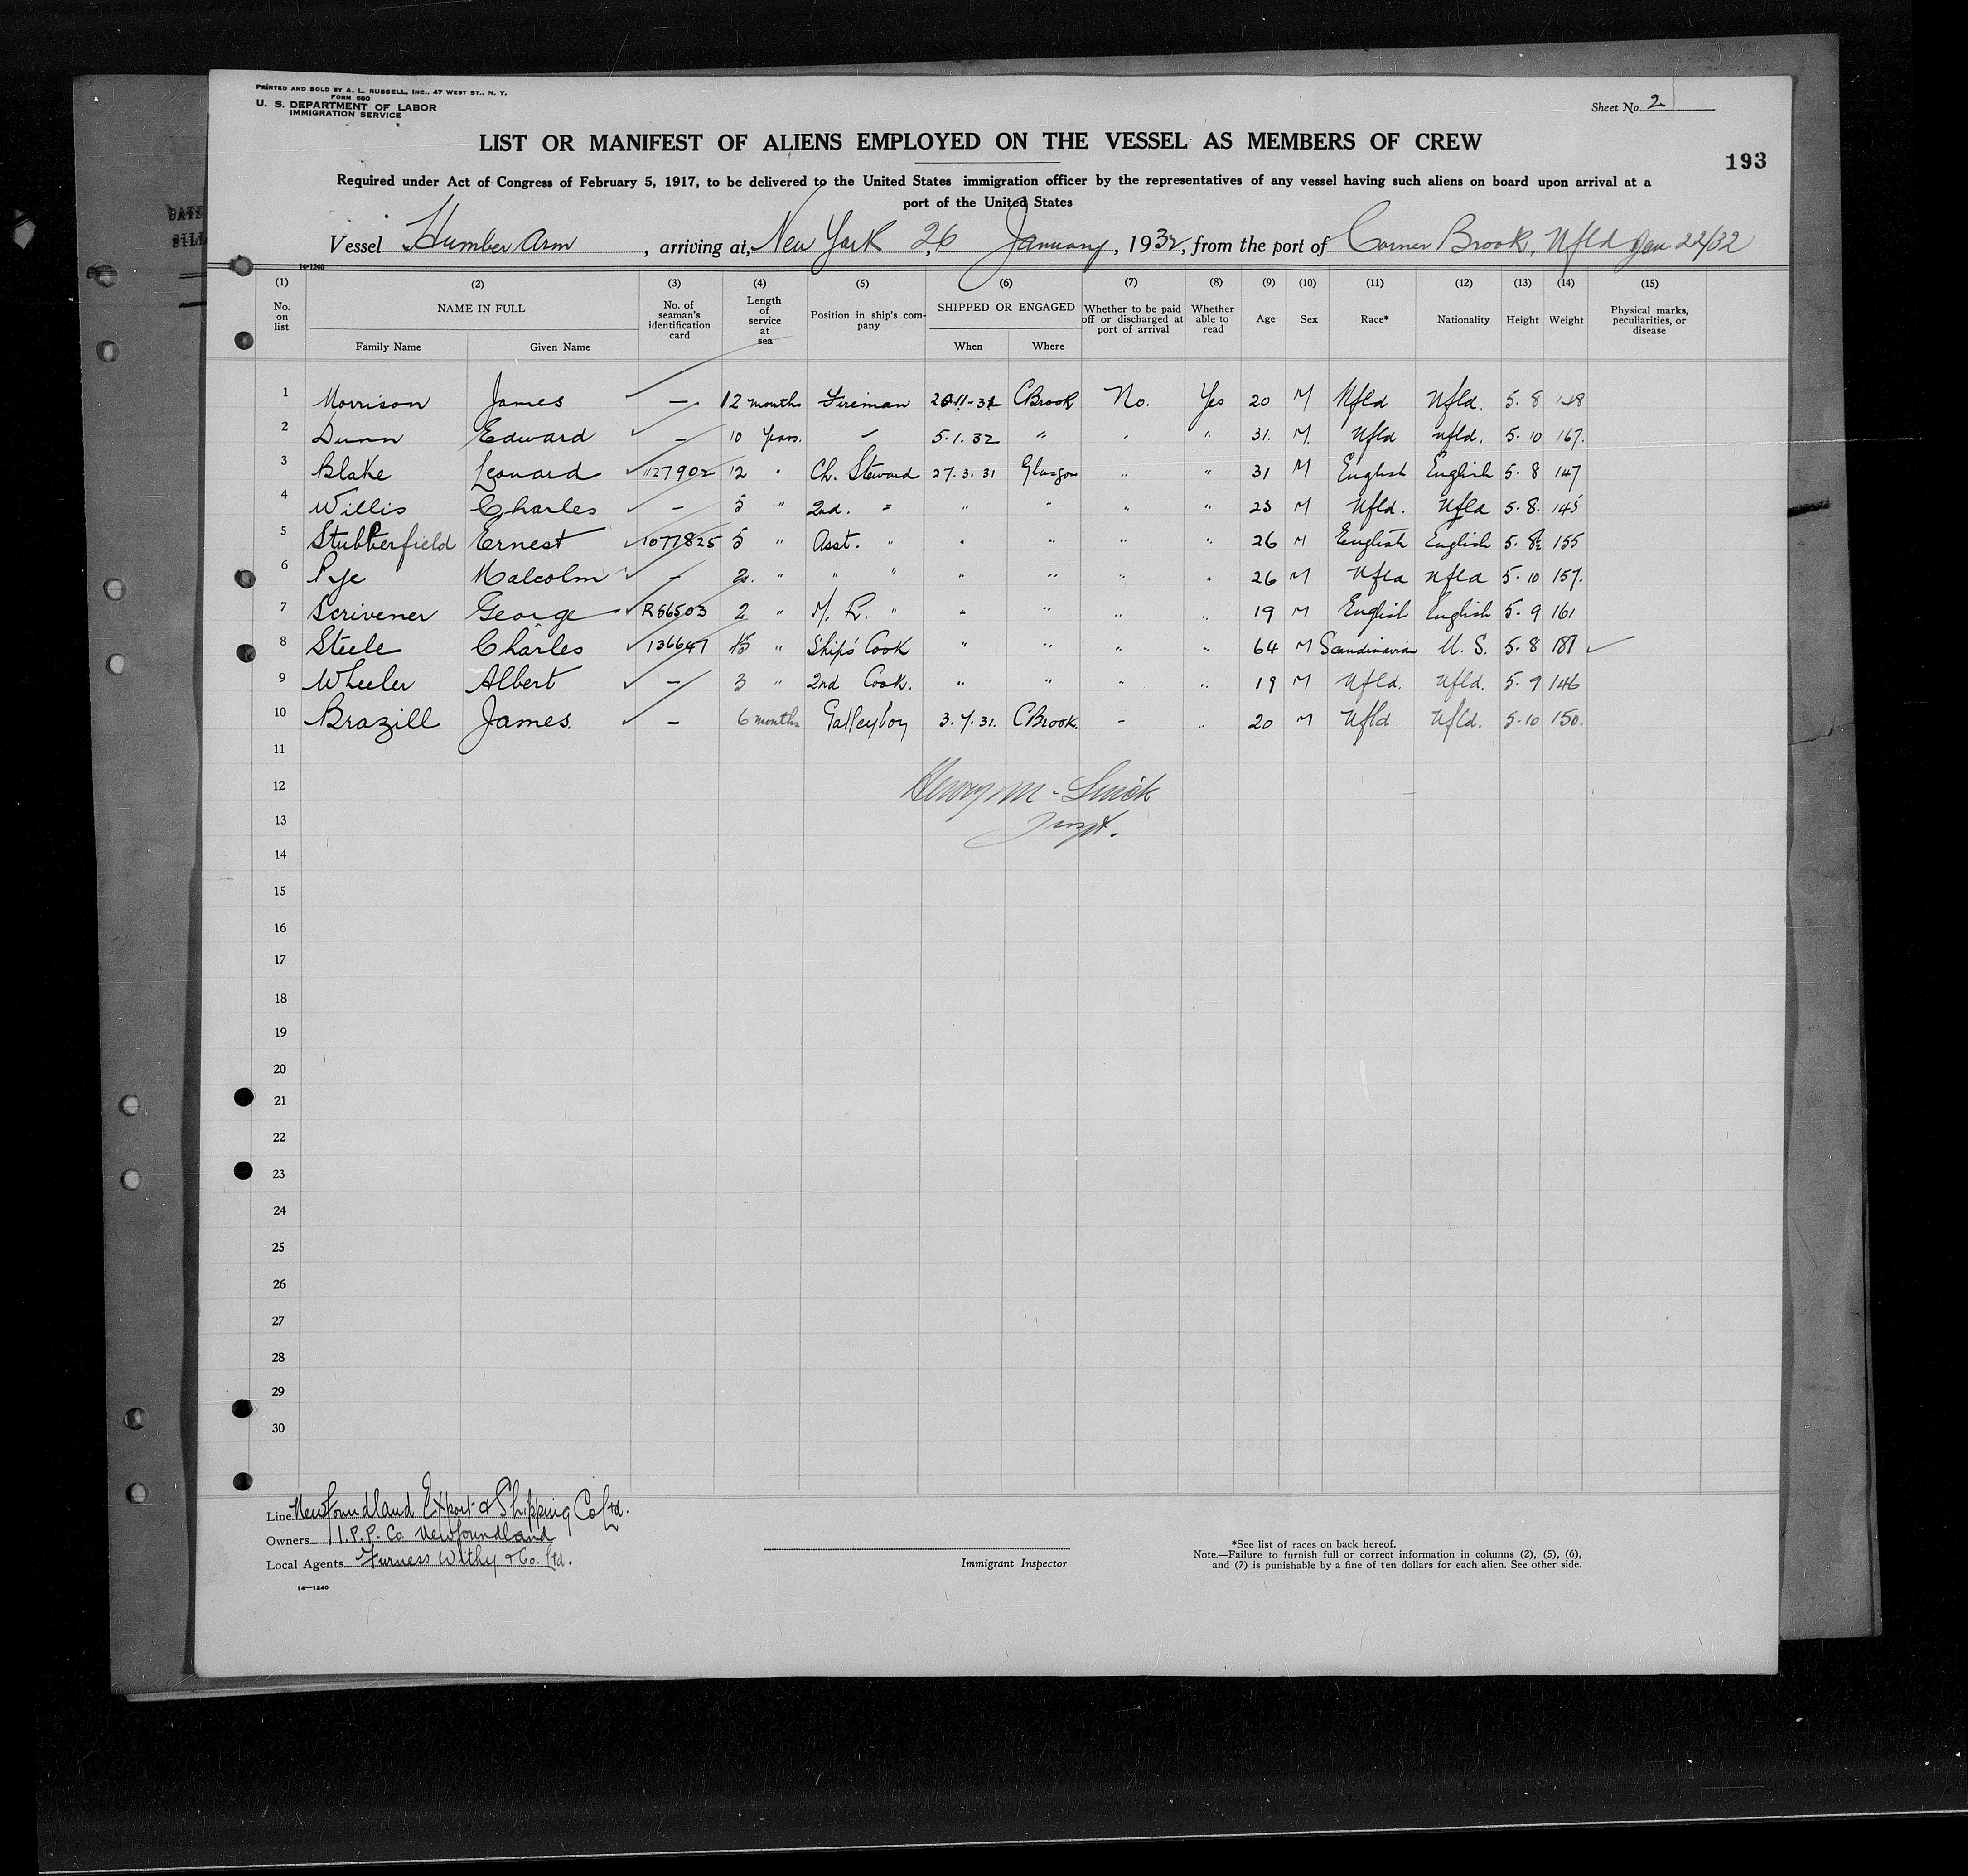 PRINTED AND SOLD BY A. L. RUSSELL, INC., 47 WEST ST., N. Y.
FORM 680
U. S. DEPARTMENT OF LABOR
IMMIGRATION SERVICE
Sheet No. 2
LIST OR MANIFEST OF ALIENS EMPLOYED ON THE VESSEL AS MEMBERS OF CREW
193
Required under Act of Congress of February 5, 1917, to be delivered to the United States immigration officer by the representatives of any vessel having such aliens on board upon arrival at a
port of the United States
Vessel Humber Arm, arriving at, New York 26 January, 1932, from the port of Corner Brook, Nfld Jan 22/32
14-1240
(1) (2) (3) (4) (5) (6) (7) (8) (9) (10) (11) (12) (13) (14) (15)
No. on list NAME IN FULL Family Name Given Name No. of seaman's identification card Length of service at sea Position in ship's company SHIPPED OR ENGAGED When Where Whether to be paid off or discharged at port of arrival Whether able to read Age Sex Race* Nationality Height Weight Physical marks, peculiarities, or disease
1 Morrison James — 12 months Fireman C Brook No. Yes 20 M Nfld Nfld. 5.8 148
2 Dunn Edward — 10 Years. " 5.1.32 " " " 31. M. Nfld nfld. 5.10 167.
3 Blake Leonard 1127902 12 " Ch. Steward 27.3.31 Glasgow " " 31 M English English 5.8 147
4 Willis Charles — 5 " 2nd. " " " " " 23 M Nfld. Nfld 5.8. 145
5 Stubberfield Ernest 1077825 5 " Asst. " " " " " 26 M English English 5.8½ 155
6 Pye Malcolm — 2. " " " " " " " 26 M Nfld Nfld 5.10 157.
7 Scrivener George R56503 2 " M. R. " " " " " 19 M English English 5.9 161
8 Steele Charles 136647 15 " Ship's Cook " " " " 64 M Scandinavian U. S. 5.8 181
9 Wheeler Albert — 3 " 2nd Cook. " " " " 19 M Nfld. Nfld. 5.9 146
10 Brazill James. — 6 months Galleyboy 3.7.31. C Brook. - " 20 M Nfld Nfld. 5.10 150.
11
12
Henry M.
13
14
15
16
17
18
19
20
21
22
23
24
25
26
27
28
29
30
Line Newfoundland Export & Shipping Co Ltd.
Owners I.P.P. Co. Newfoundland
Local Agents Furness Withy & Co. Ltd.
14-1240
Immigrant Inspector
*See list of races on back hereof.
Note.—Failure to furnish full or correct information in columns (2), (5), (6),
and (7) is punishable by a fine of ten dollars for each alien. See other side.